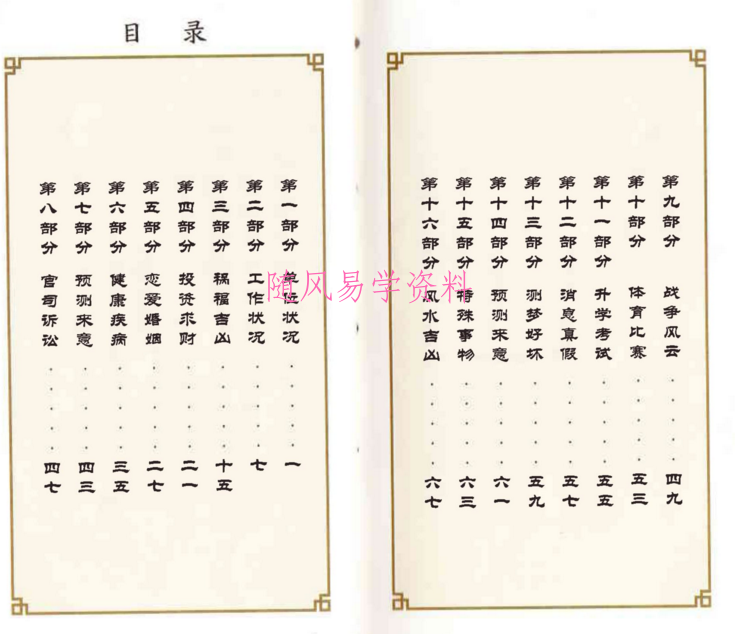 目录
第一部分 单位状况 · · · · · 一
第二部分 工作状况 · · · · · 七
第三部分 祸福吉凶 · · · · · 十五
第四部分 投资求财 · · · · · 二一
第五部分 恋爱婚姻 · · · · · 二七
第六部分 健康疾病 · · · · · 三五
第七部分 预测来意 · · · · · 四三
第八部分 官司诉讼 · · · · · 四七
第九部分 战争风云 · · · · · 四九
第十部分 体育比赛 · · · · · 五三
第十一部分 升学考试 · · · · · 五五
第十二部分 消息真假 · · · · · 五七
第十三部分 测梦好坏 · · · · · 五九
第十四部分 预测来意 · · · · · 六一
第十五部分 特殊事物 · · · · · 六三
第十六部分 风水吉凶 · · · · · 六七
随风易学资料